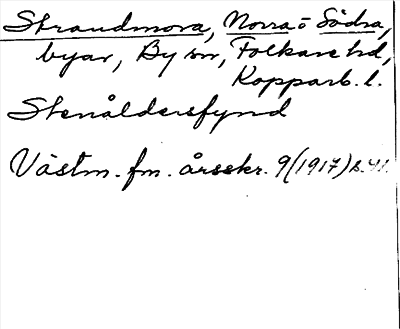 Strandmora, Norra o Södra,
byar, By sn, Folkare hd,
Kopparb. l.
Stenåldersfynd
Västm. fm. årsskr. 9(1917) s. 41.